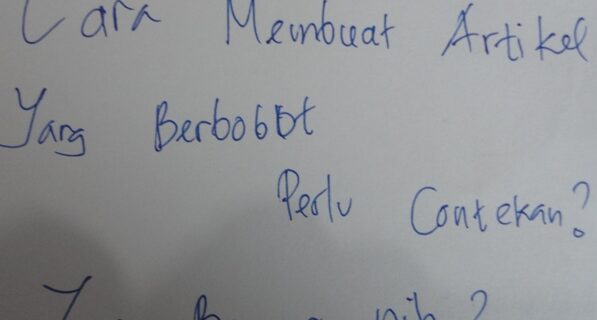 Cara Membuat Artikel
Yang Berbobot
Perlu Contekan?